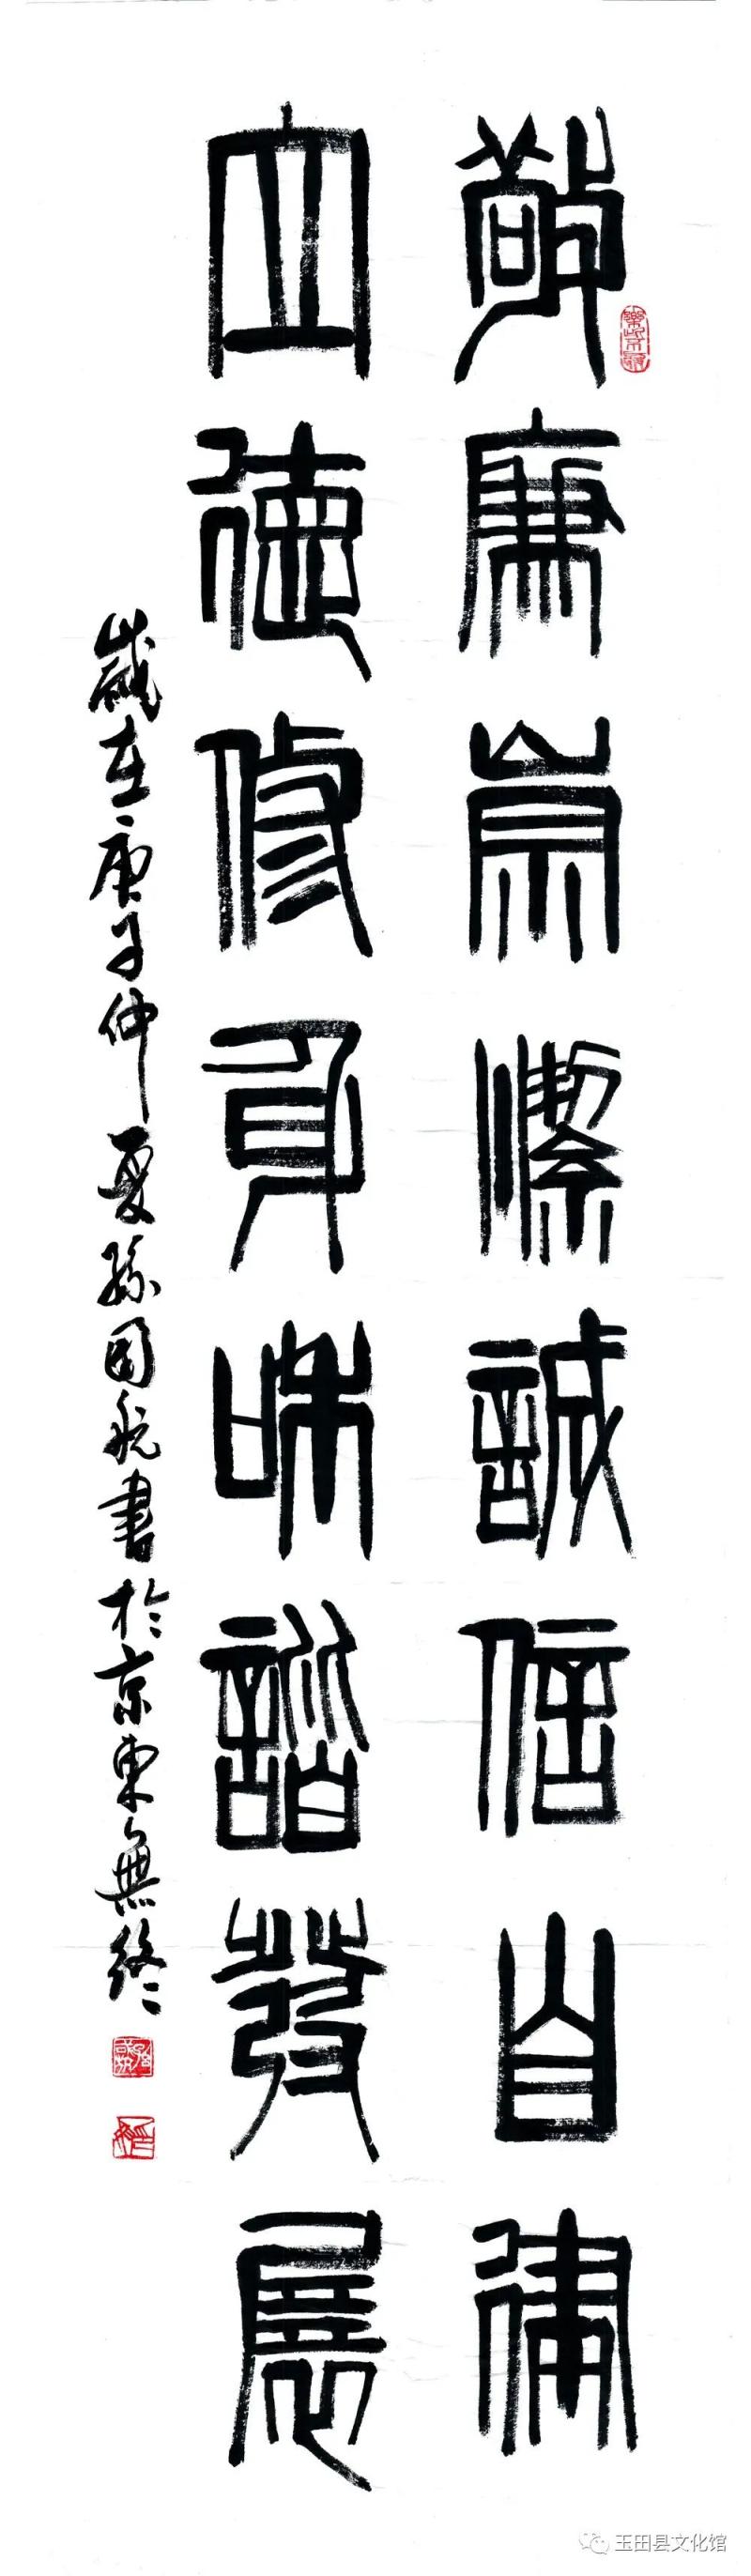 敬廉崇潔誠信自律
立德修身和諧發展
歲在庚子仲夏孫國航書於京東無終
玉田县文化馆